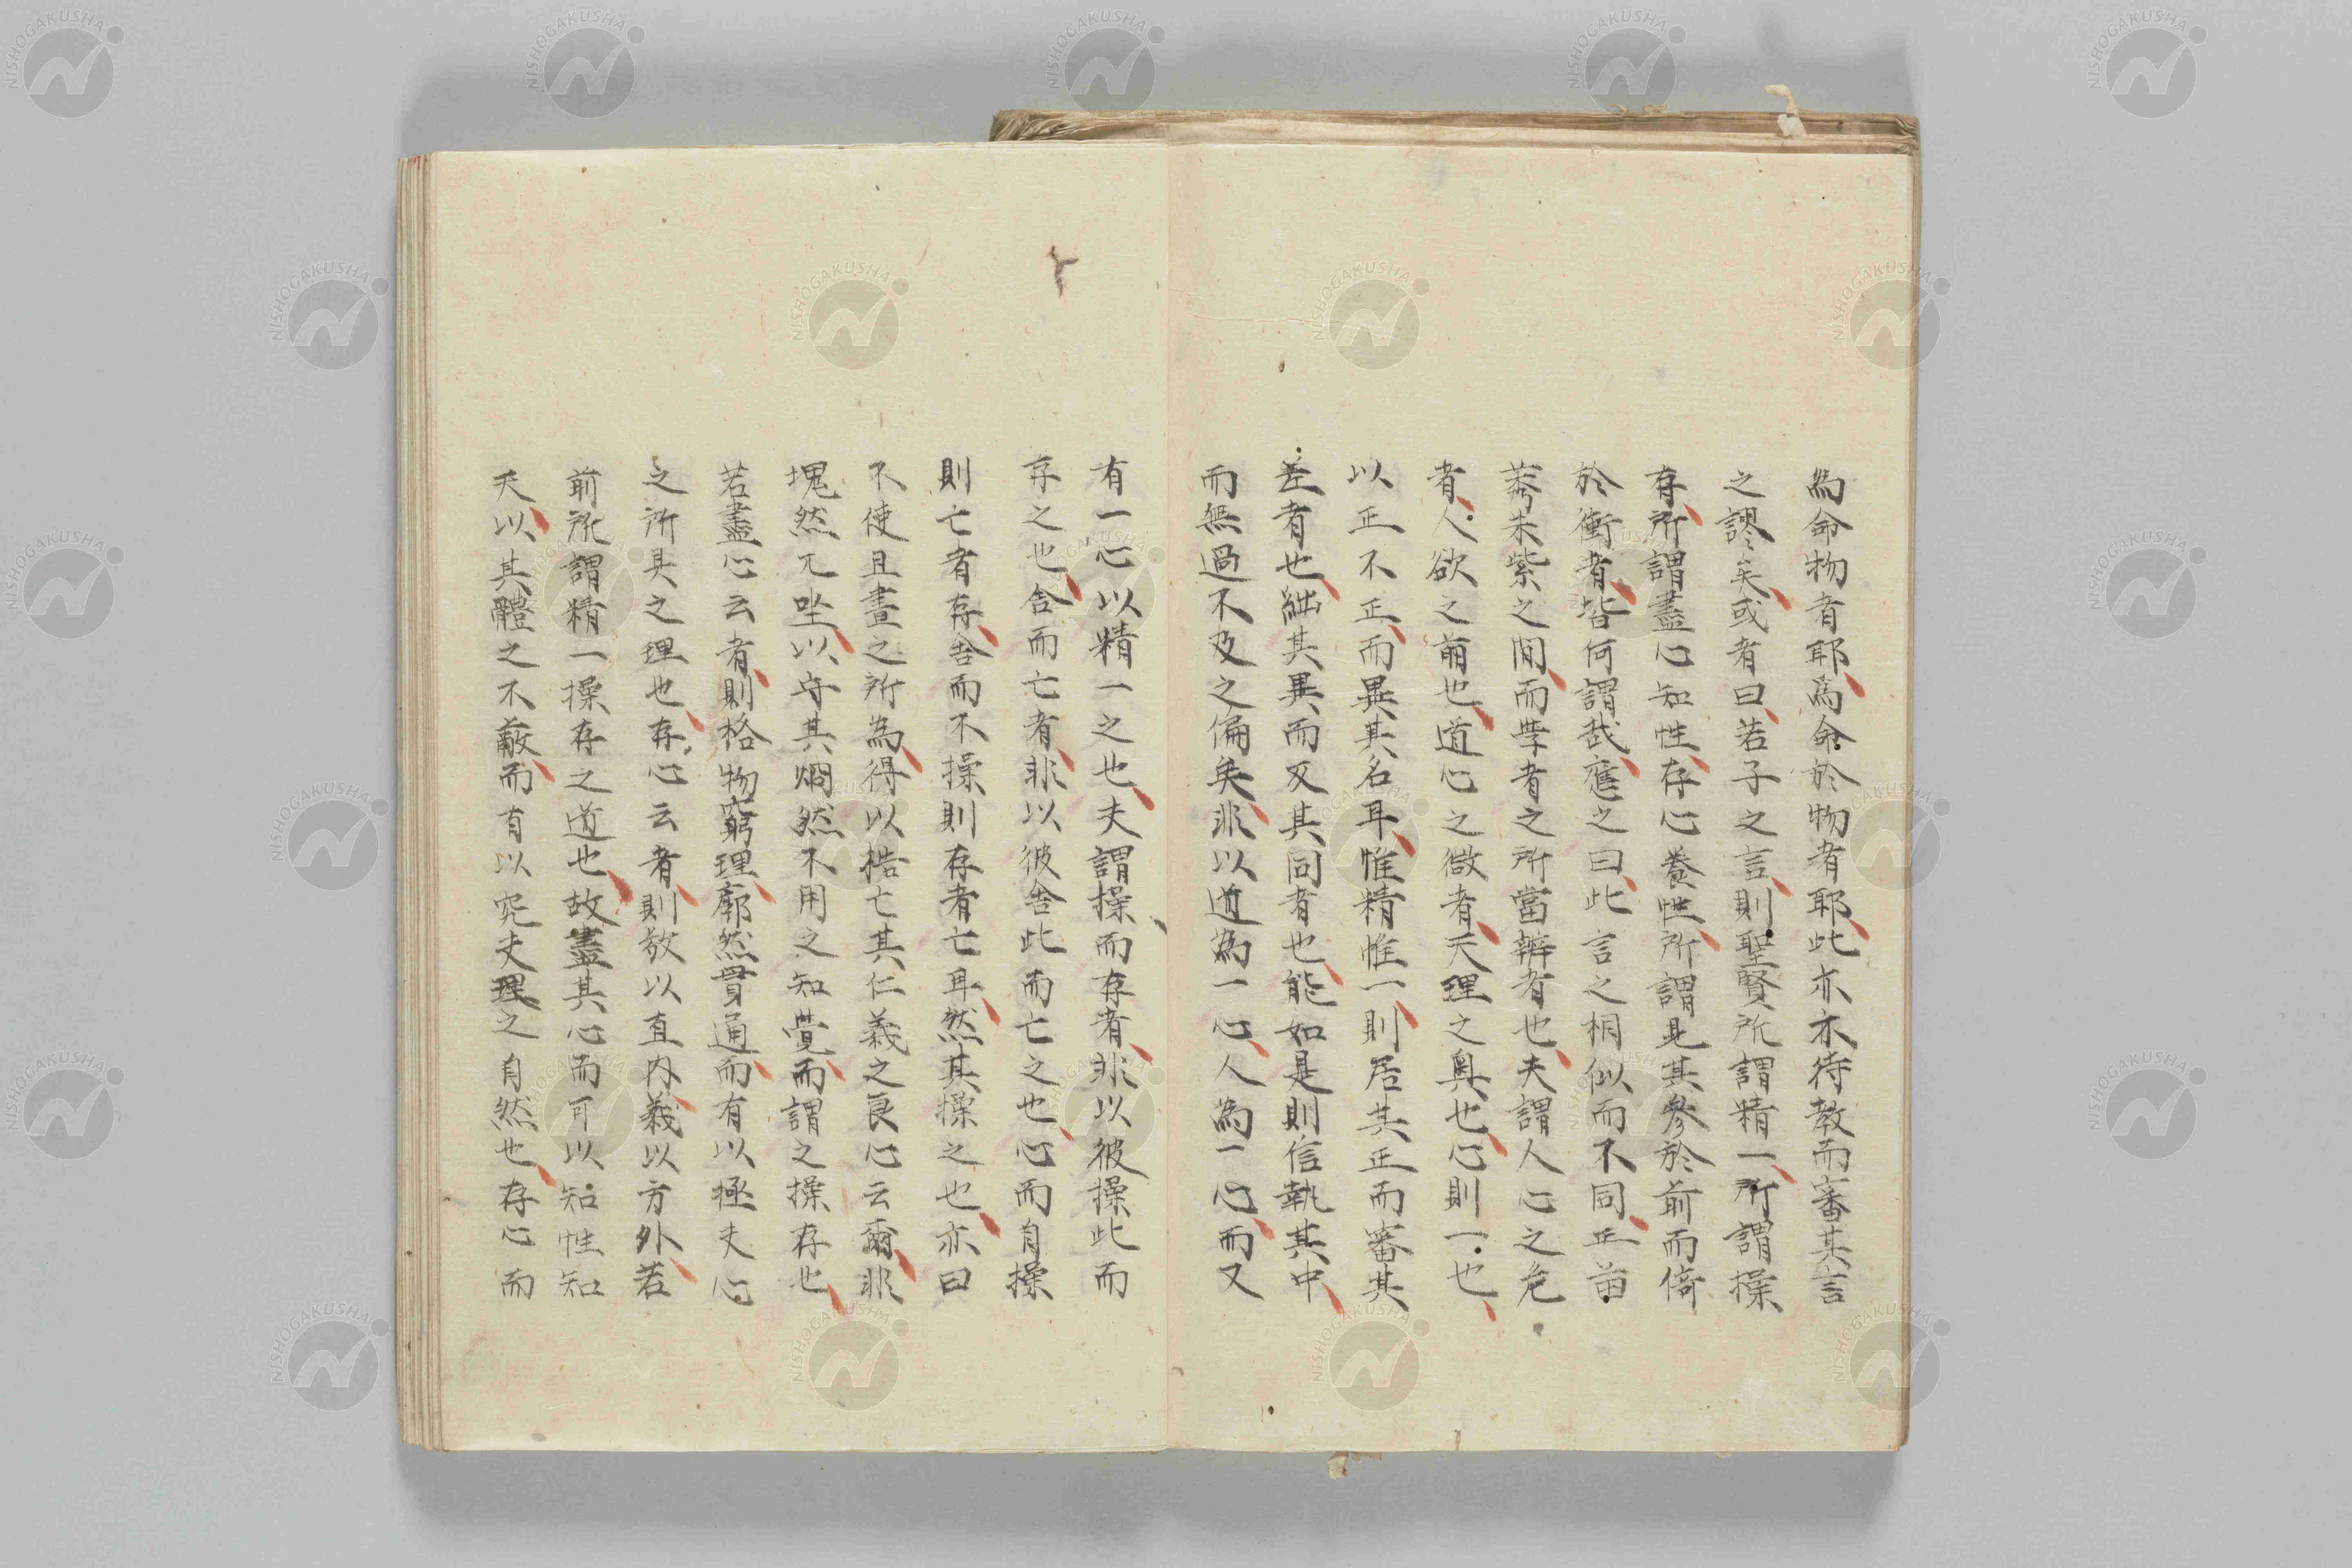 為命物者耶為命於物者耶此亦不待教而審其言
之謬矣或者曰若子之言則聖賢所謂精一所謂操
存所謂盡心知性存心養性所謂見其參於前而倚
於衡者皆何謂哉應之曰此言之相似而不同正苗
莠朱紫之間而學者之所當辨者也夫謂人心之危
者人欲之萌也道心之微者天理之奥也心則一也
以正不正而異其名耳惟精惟一則居其正而審其
差者也絀其異而反其同者也能如是則信執其中
而無過不及之偏矣非以道為一心人為一心而又
有一心以精一之也夫謂操而存者非以彼操此而
存之也舎而亡者非以彼舎此而亡之也心而自操
則亡者存舎而不操則存者亡耳然其操之也亦曰
不使旦晝之所為得以梏亡其仁義之良心云爾非
塊然兀坐以守其烱然不用之知覺而謂之操存也
若盡心云者則格物窮理廓然貫通而有以極夫心
之所具之理也存心云者則敬以直内義以方外若
前所謂精一操存之道也故盡其心而可以知性知
天以其體之不蔽而有以究夫理之自然也存心而
NISHOGAKUSHA